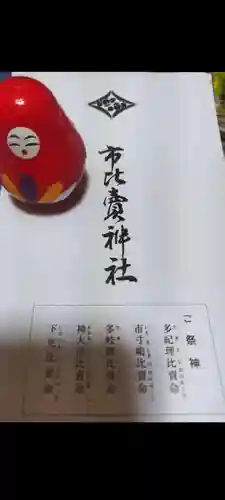 市比賣神社
ご祭神
多紀理比賣命
市寸嶋比賣命
多岐都比賣命
神大市比賣命
下光比賣命